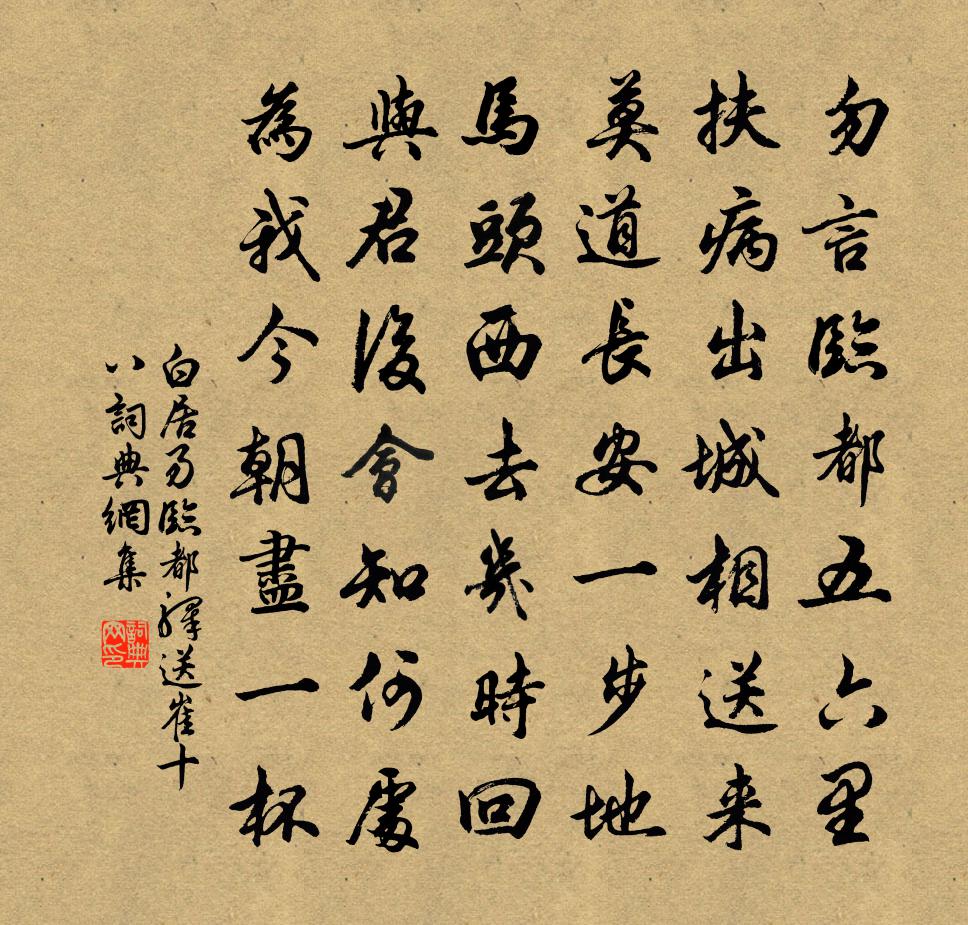 勿言臨都五六里
扶病出城相送来
莫道長安一步地
馬頭西去幾時回
與君後會知何處
為我今朝盡一杯
白居易臨都驛送崔十
八詞典網集
詞典
网印